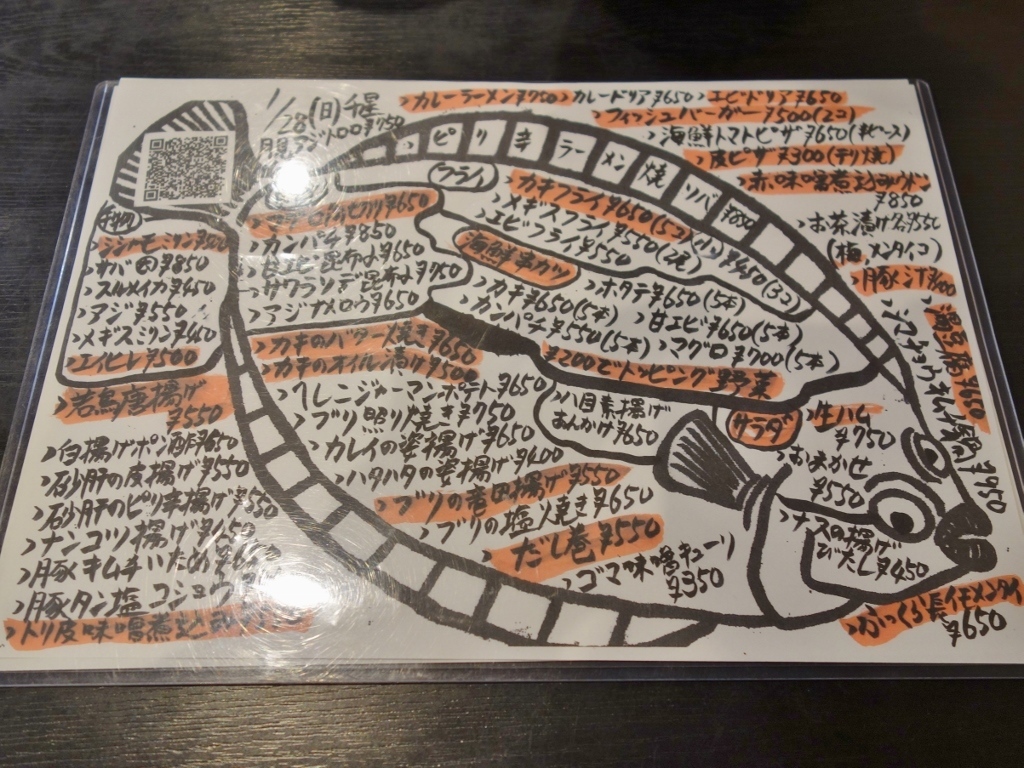 1/28(日)
カレーラーメン¥750
カレードリア¥650
エビドリア¥650
フィッシュバーガー¥500(2コ)
海鮮トマトピザ¥650
皮ピザ¥300(テリ焼)
赤味噌煮込みウドン
¥850
お茶漬け
(梅、メンタイコ)
豚汁
湯豆腐
ピリ辛ラーメン焼ソバ
フライ
カキフライ¥650(5コ)
メギスフライ¥550
エビフライ¥550(2尾)
カンパチ¥850
甘エビ昆布〆¥650
サワラ
アジナメロウ¥650
海鮮串カツ
カキ¥650(5本)
ホタテ¥650(5本)
カンパチ¥550(5本)
甘エビ¥650(5本)
マグロ¥700(5本)
¥200でトッピング野菜
サバ
スルメイカ¥450
アジ¥550
メギスミリン¥450
エイヒレ¥500
若鳥唐揚げ
¥550
白揚げポン酢¥650
砂肝の皮揚げ¥550
砂肝のピリ辛揚げ¥550
ナンコツ揚げ
豚キムチいため
豚タン塩コショウ
トリ皮味噌煮込
カキのバター焼き¥650
カキのオイル漬け¥500
ブリ照り焼き¥750
カレイの姿揚げ¥650
ハタハタの姿揚げ¥400
ブリの竜田揚げ¥550
ブリの塩焼き¥650
だし巻¥550
ゴマ味噌キューリ
¥350
素揚げ
あんかけ¥650
サラダ
生ハム
¥750
おまかせ
¥550
ナスの揚げ
びたし¥450
ふっくら長イモメンタイ
¥650